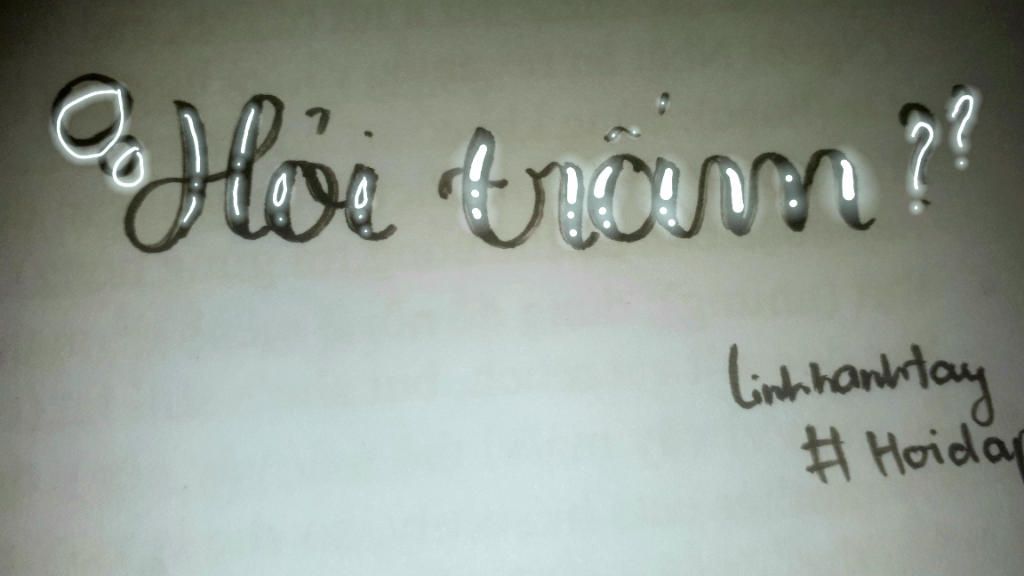 Hỏi trấm ??
Linhhanhtay
# Hoidap